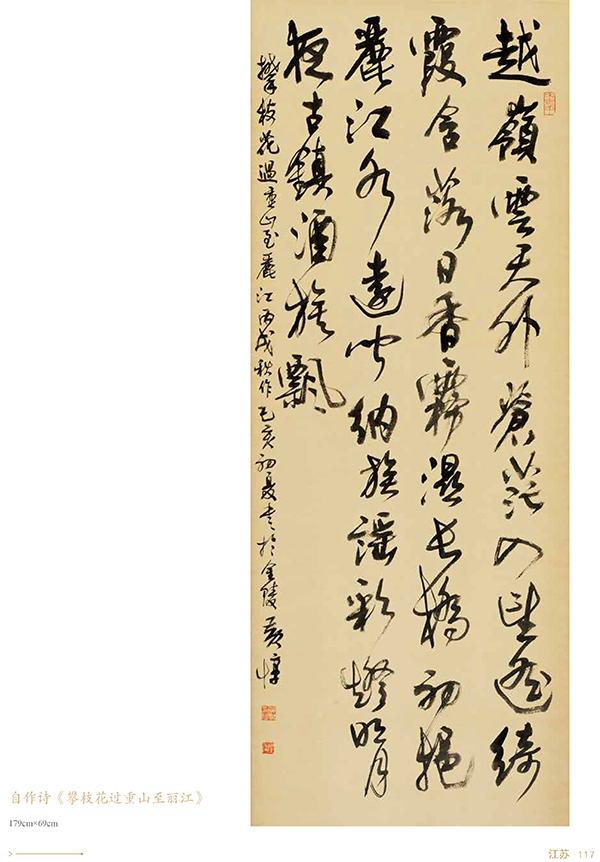 越嶺雲天外蒼茫入望遙綺
霞含落日香霧濕長橋初挹
麗江水遠聞納族謠彩燈明月
夜古鎮酒旗飄
攀枝花過重山至麗江丙戌秋作己亥初夏書於金陵黃惇
自作诗《攀枝花过重山至丽江》
179cm×69cm
江苏 117